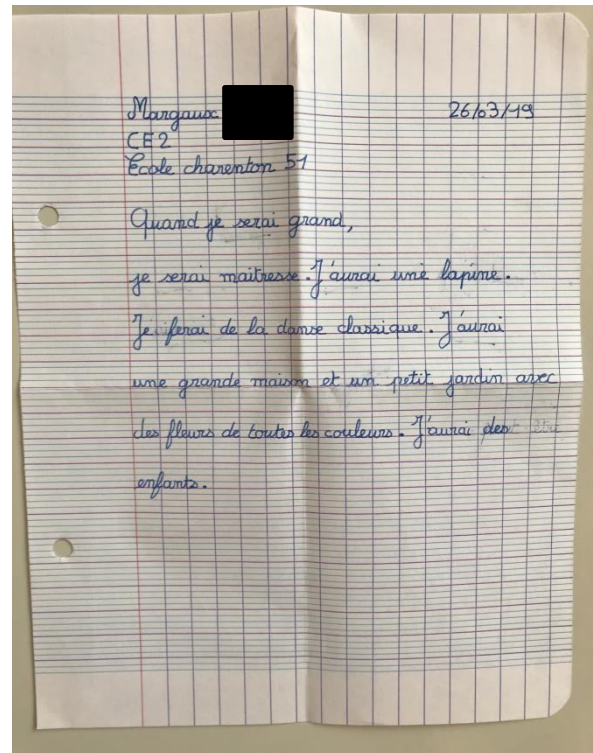 Margaux 26/03/19
CE2
Ecole charenton 51
Quand je serai grand,
je serai maitresse. J'aurai une lapine.
Je ferai de la danse classique. J'aurai
une grande maison et un petit jardin avec
des fleurs de toutes les couleurs. J'aurai des
enfants.